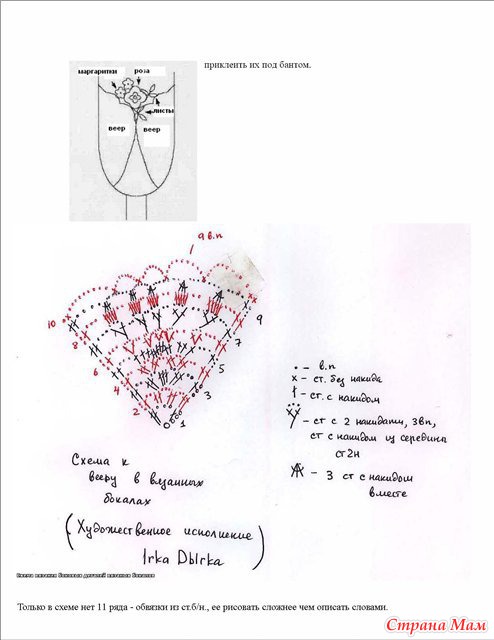 приклеить их под бантом.
маргаритки роза
листы
веер веер
9 в.п
10
8
6
4
2
0
1
3
5
7
9
• - в.п
x - ст. без накида
† - ст. с накидом
- ст с 2 накидами, 3вп,
ст с накидом из середины
ст2н
- 3 ст с накидом
вместе
Схема к
вееру в вязанных
бокалах
(Художественное исполнение
Irka Dbirka)
Схема вязания боковых деталей вязаных бокалов
Только в схеме нет 11 ряда - обвязки из ст.б/н., ее рисовать сложнее чем описать словами.
Страна Мам